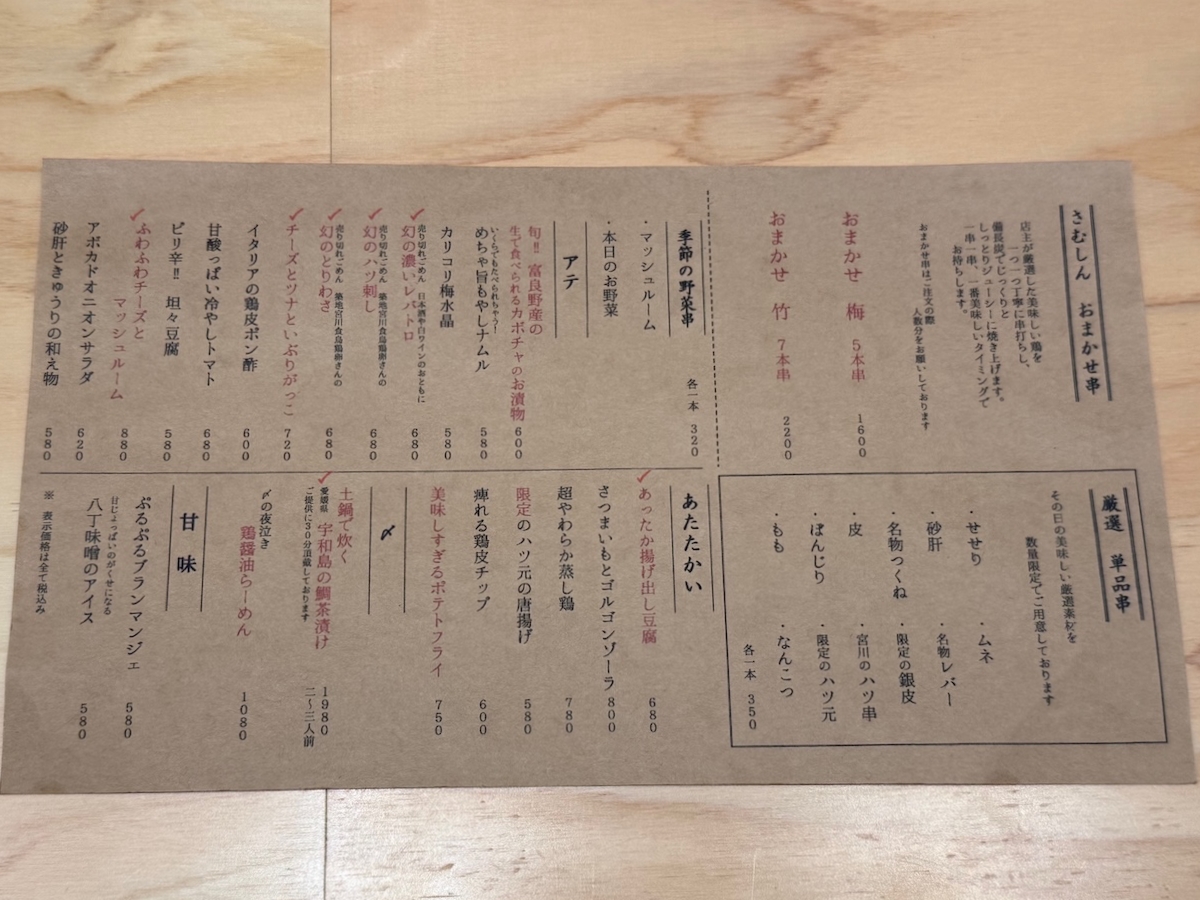 さむしん おまかせ串
店主が厳選した美味しい鶏を
一つ一つ丁寧に串打ちし、
備長炭でじっくりと
しっとりジューシーに焼き上げます。
一串一串、一番美味しいタイミングで
お持ちします。
おまかせ串はご注文の際
人数分をお願いしております
おまかせ 梅 5本串 1600
おまかせ 竹 7本串 2200
厳選 単品串
その日の美味しい厳選素材を
数量限定でご用意しております
・せせり ・ムネ
・砂肝 ・名物レバー
・名物つくね ・限定の銀皮
・皮 ・宮川のハツ串
・ぼんじり ・限定のハツ元
・もも ・なんこつ
各一本 350
季節の野菜串
各一本 320
・マッシュルーム
・本日のお野菜
アテ
旬!! 富良野産の
生で食べられるカボチャのお漬物 600
いくらでもたべられちゃう!
めちゃ旨もやしナムル 580
カリコリ梅水晶 580
売り切れごめん 日本酒や白ワインのおともに
✓幻の濃いレバトロ 680
売り切れごめん 築地宮川食鳥鶏卵さんの
✓幻のハツ刺し 680
売り切れごめん 築地宮川食鳥鶏卵さんの
✓幻のとりわさ 680
✓チーズとツナといぶりがっこ 720
イタリアの鶏皮ポン酢 600
甘酸っぱい冷やしトマト 680
ピリ辛!! 坦々豆腐 580
✓ふわふわチーズと
マッシュルーム 880
アボカドオニオンサラダ 620
砂肝ときゅうりの和え物 580
あたたかい
✓あったか揚げ出し豆腐 680
さつまいもとゴルゴンゾーラ 800
超やわらか蒸し鶏 780
限定のハツ元の唐揚げ 580
痺れる鶏皮チップ 600
美味しすぎるポテトフライ 750
〆
土鍋で炊く
✓愛媛県 宇和島の鯛茶漬け 1980
ご提供に30分頂戴しております 二～三人前
〆の夜泣き
鶏醤油らーめん 1080
甘味
ぷるぷるブランマンジェ 580
甘じょっぱいのがくせになる
八丁味噌のアイス 580
※ 表示価格は全て税込み